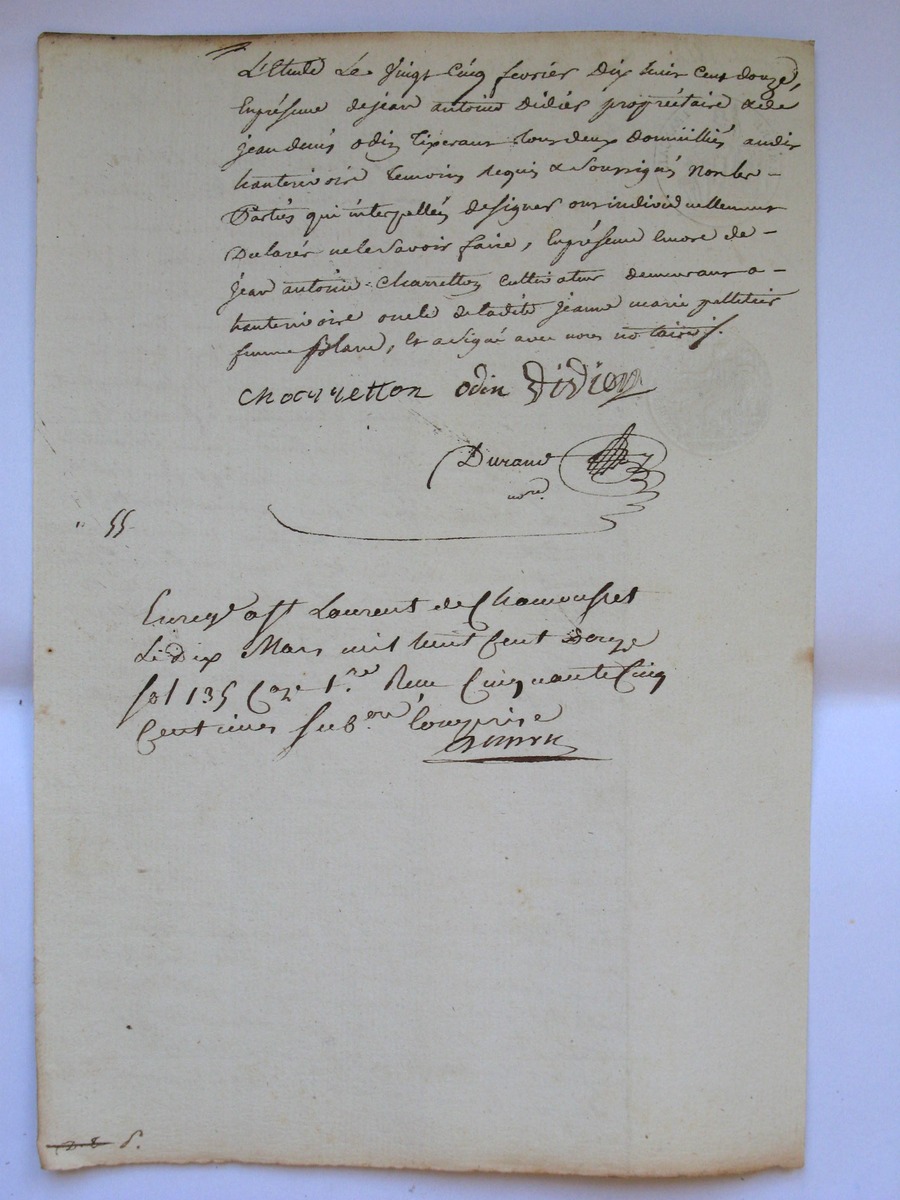 L'Etude Le vingt cinq fevrier dix huit cent douze,
En présence de jean antoine didier propriétaire & de
jean denis odin tixerant tous deux domiciliés audit
hauterivoire temoins requis & soussignés non les
Parties qui interpellés de signer ont individuellement
Declarés ne le savoir faire, En présence encore de
jean antoine Charretton cultivateur demeurant a
hauterivoire oncle de ladite jeanne marie pelletier
femme Blanc, Et a signé avec nous notaire
Charretton odin Didier
Durand
nore
55
Enregé a St Laurent de Chamousset
Le Dix Mars mil huit Cent douze
fol 135 Caze 1re Recu Cinquante Cinq
Centimes Sub.on Comprise
D. E 6.